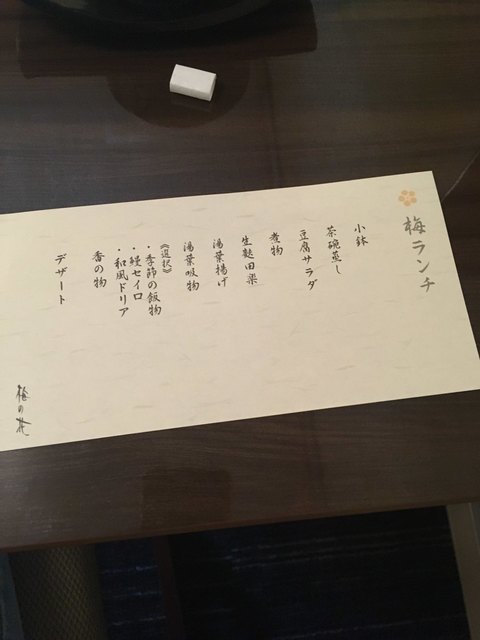 梅ランチ
小鉢
茶碗蒸し
豆腐サラダ
煮物
生麩田楽
湯葉揚げ
湯葉吸物
《選択》
・季節の飯物
・鰻セイロ
・和風ドリア
香の物
デザート
梅の花